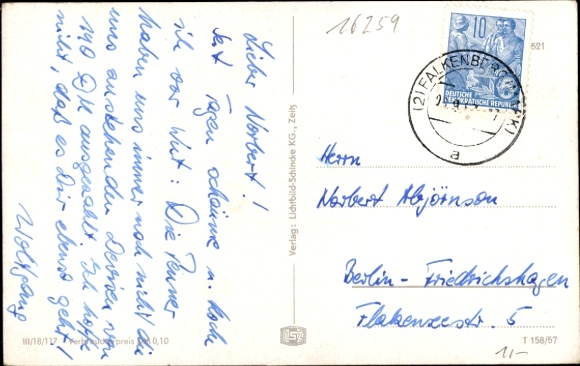 Lieber Norbert!
Seit Tagen schäume u. koche
ich vor Wut: Die Penner
haben uns immer noch nicht die
uns zustehenden Devisen von
140 DM ausgezahlt. Ich hoffe
nicht, daß es Dir ebenso geht!
Wolfgang
III/18/117 Verbraucherpreis DM 0,10
Verlag: Lichtbild-Schincke KG., Zeitz
16259
10
DEUTSCHE
DEMOKRATISCHE REPUBLIK
(2) FALKENBERG (MARK)
a
521
Herrn
Norbert Abjörnson
Berlin - Friedrichshagen
Flakenseestr. 5
T 158/57
1,-